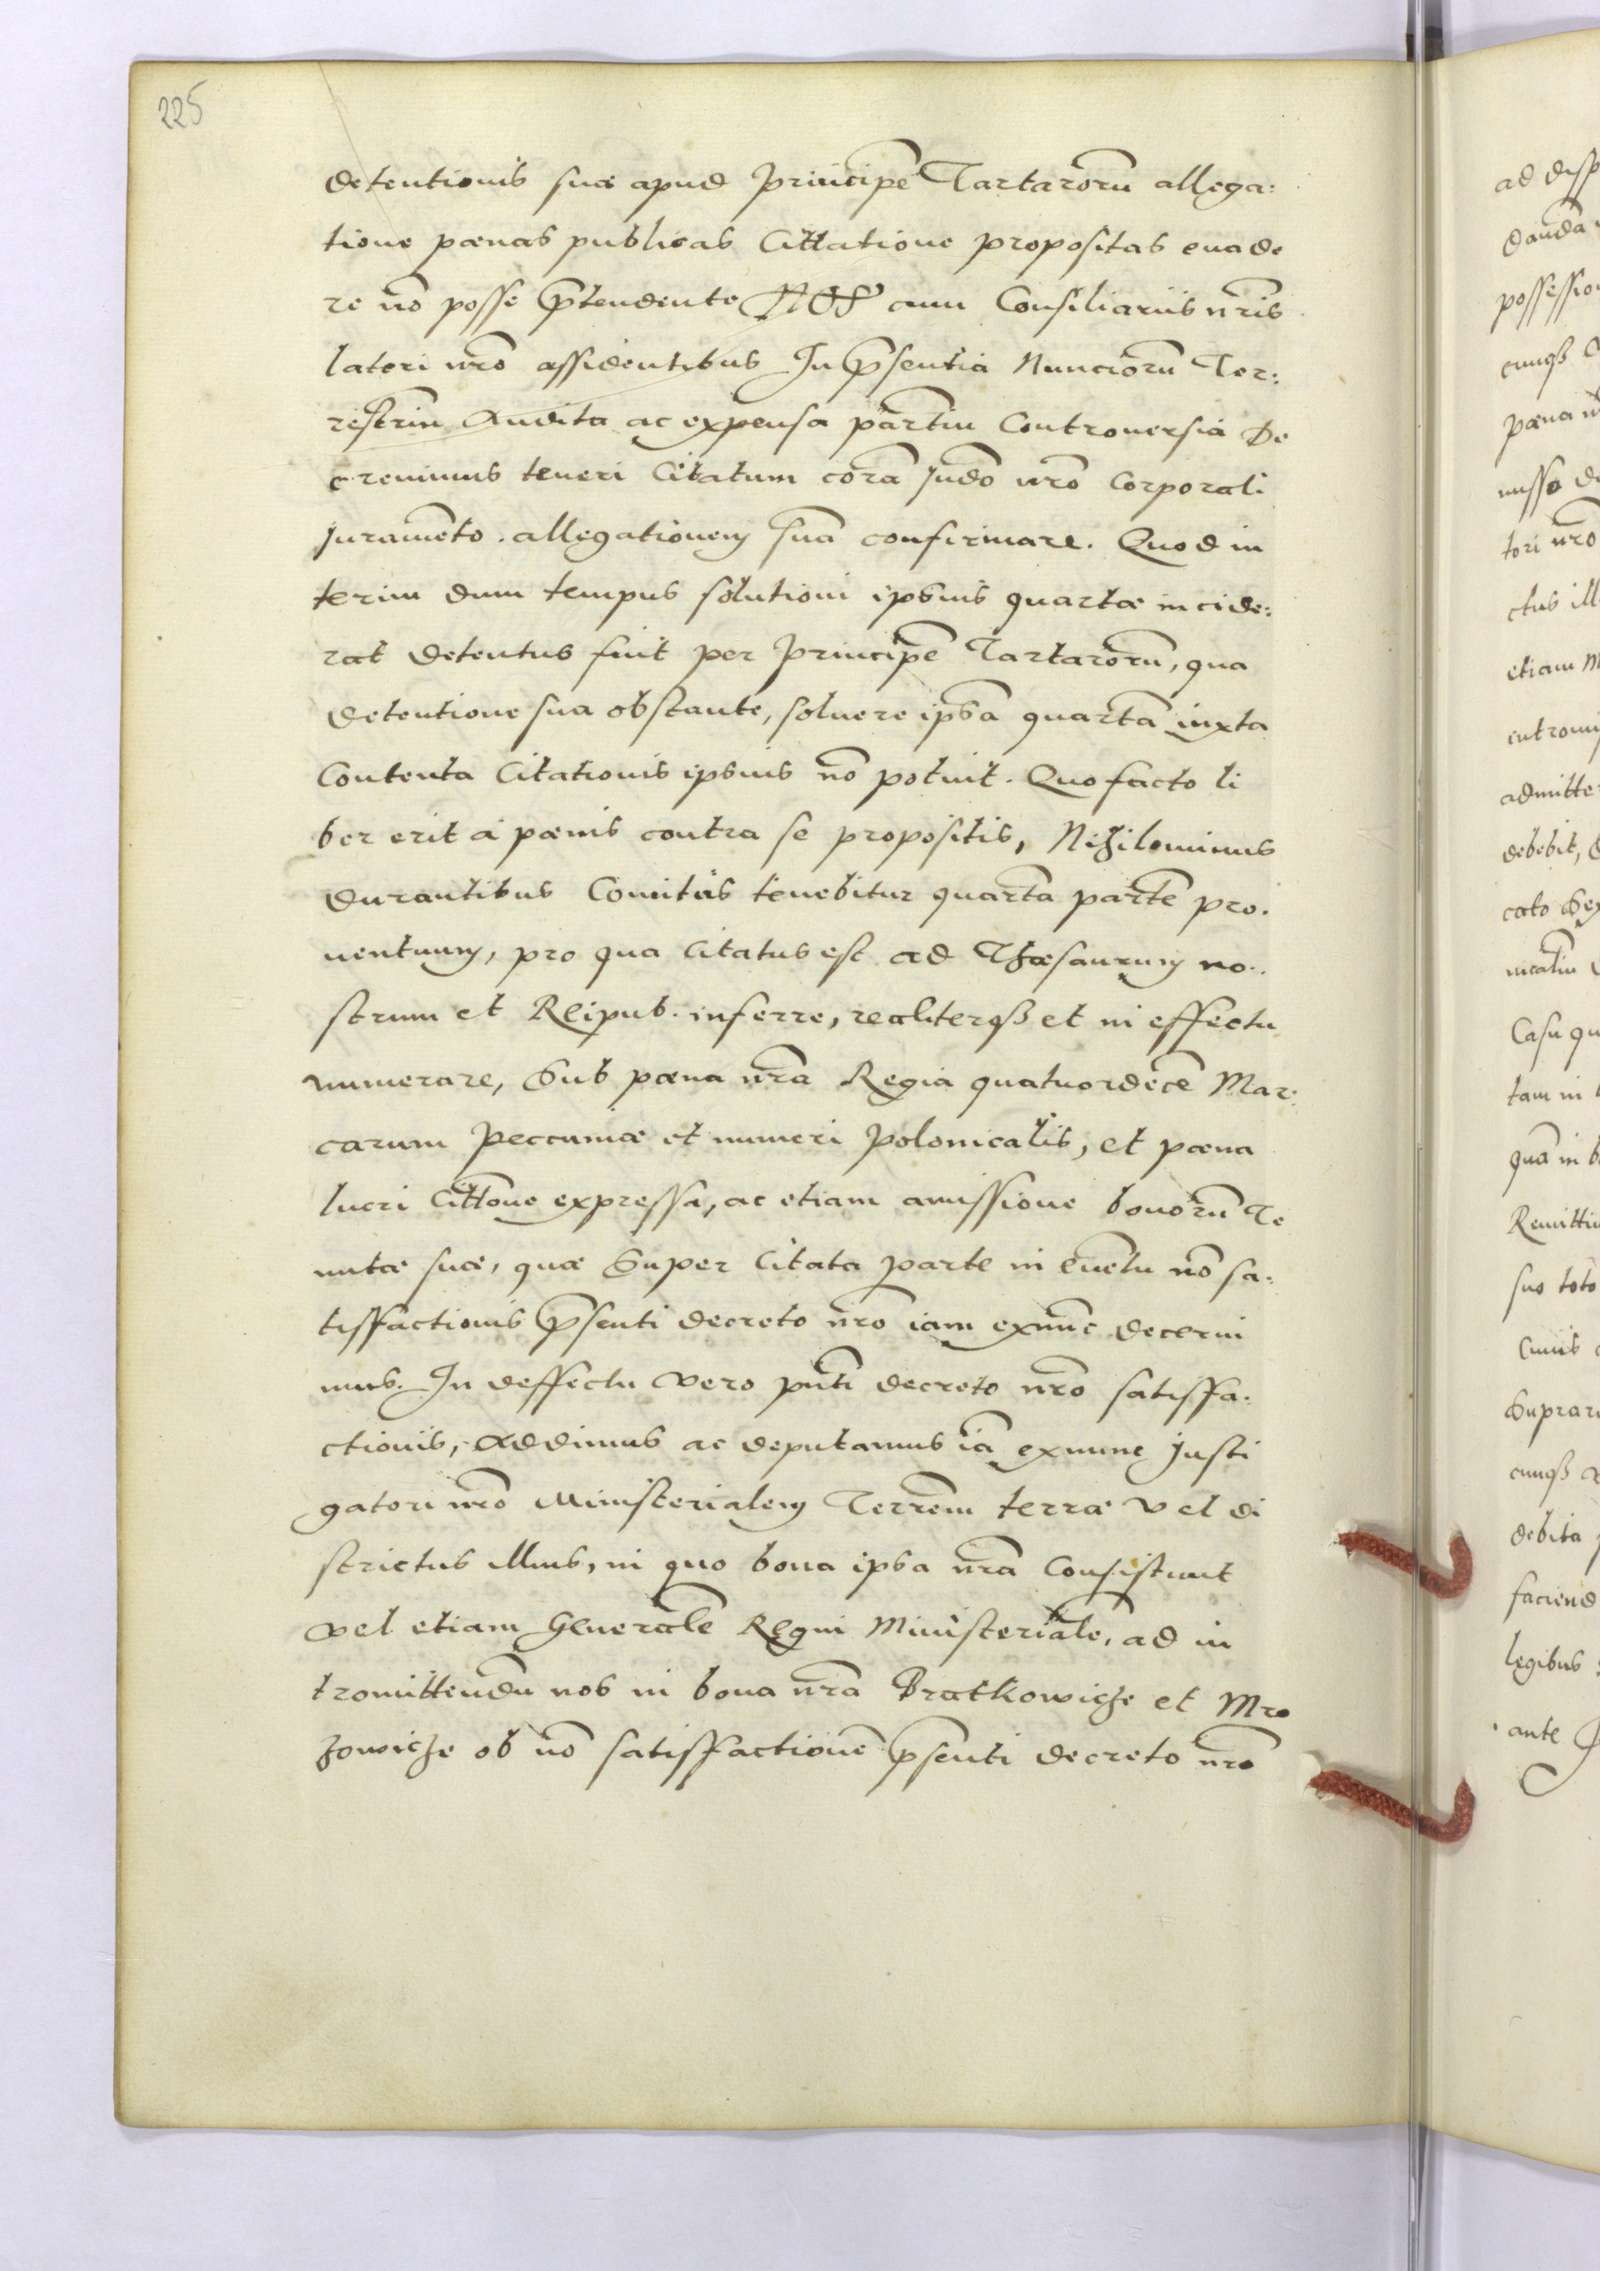 225
detentionis suæ apud Principē Tartarorū allega:
tione pœnas publicas Cittatione propositas euade
re nō posse p̄tendente Nos cum Consiliariis nr̄is
lateri nr̄o assidentibus In p̄sentia Nunciorū Ter:
restriū Audita ac expensa partiū Controuersia De
creuimus teneri Citatum corā Judō nr̄o Corporali
Juramēto. allegationem suā confirmare. Quod in
terim dum tempus solutioni ipsius quartæ incide:
rat detentus fuit per Principē Tartarorū, qua
detentione sua obstante, soluere ipsā quartā iuxta
Contenta Citationis ipsius nō potuit. Quo facto li
ber erit à pœnis contra se propositis, Nihilominus
durantibus Comitiis tenebitur quartā partē pro.
uentuum, pro qua Citatus est ad Thæsaurum no..
strum et Reipub. inferre, realiterqȝ et in effectu
numerare, Sub pœna nr̄a Regia quatuordecē Mar:
carum Peccuniæ et numeri Polonicalis, et pœna
lucri Cittōne expressa, ac etiam amissione bonorū Te
nutæ suæ, quæ Super Citata parte in euētu nō sa:
tisffactionis p̄senti decreto nr̄o iam exnūc decerni
mus. In deffectu vero pn̄ti decreto nr̄o satisffa:
ctionis, Addimus ac deputamus iā exnunc Justi
gatori nr̄o Ministerialem Terrēm terræ vel di
strictus illius, in quo bona ipsa nr̄a Consistunt
vel etiam Generalē Regni Ministerialē, ad in
tromittendū nos in bona nr̄a Bratkowicze et Mro
zowicze ob nō satisffactionē p̄senti decreto nr̄o
ad disp
dandā
possessio
cumqȝ
pœna
misso
tori nr̄o
ctus ill
etiam
intromi
admitte
debebit,
cato
Casu qu
tam in
quā in b
Remittiu
suo toto
Suprar
cumqȝ
debita
faciend
legibus
ante